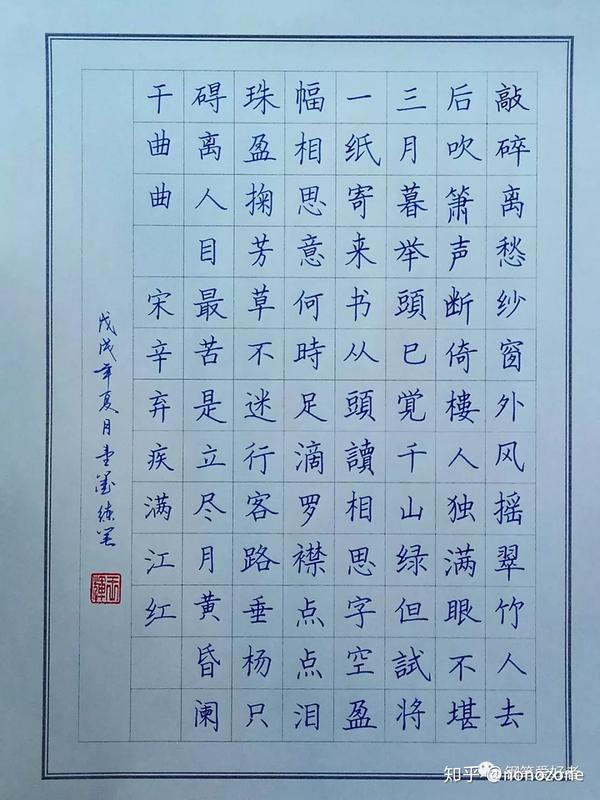 敲碎离愁纱窗外风摇翠竹人去
后吹箫声断倚樓人独满眼不堪
三月暮举頭已覚千山绿但試将
一纸寄来书从頭讀相思字空盈
幅相思意何時足滴罗襟点点泪
珠盈掬芳草不迷行客路垂杨只
碍离人目最苦是立尽月黄昏阑
干曲曲 宋辛弃疾满江红
戊戌年夏月
知乎 @nonozone
钢笔爱好者